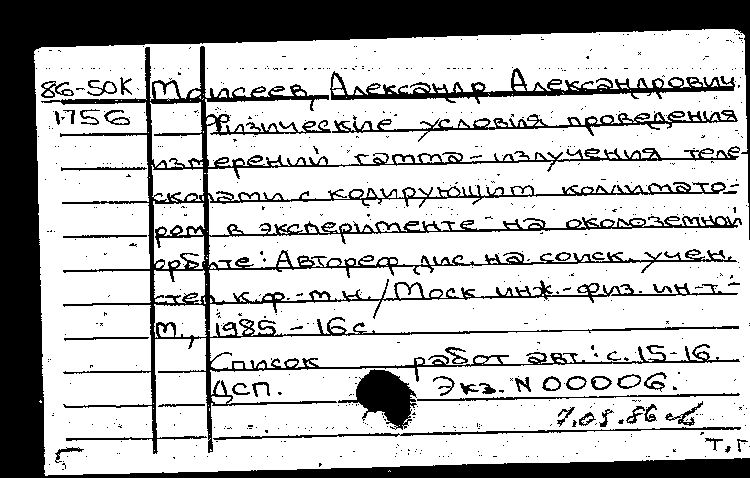 86-50К Моисеев, Александр Александрович
1756 Физические условия проведения
измерений гамма-излучения теле-
скопами с кодирующим коллимато-
ром в эксперименте на околоземной
орбите: Автореф. дис. на соиск. учен.
степ. к.ф.-м.н./Моск. инж.-физ. ин-т.-
М., 1985 - 16 с.
Список работ авт.: с. 15-16.
ДСП. Экз. N 00006.
7.08.86
т.г